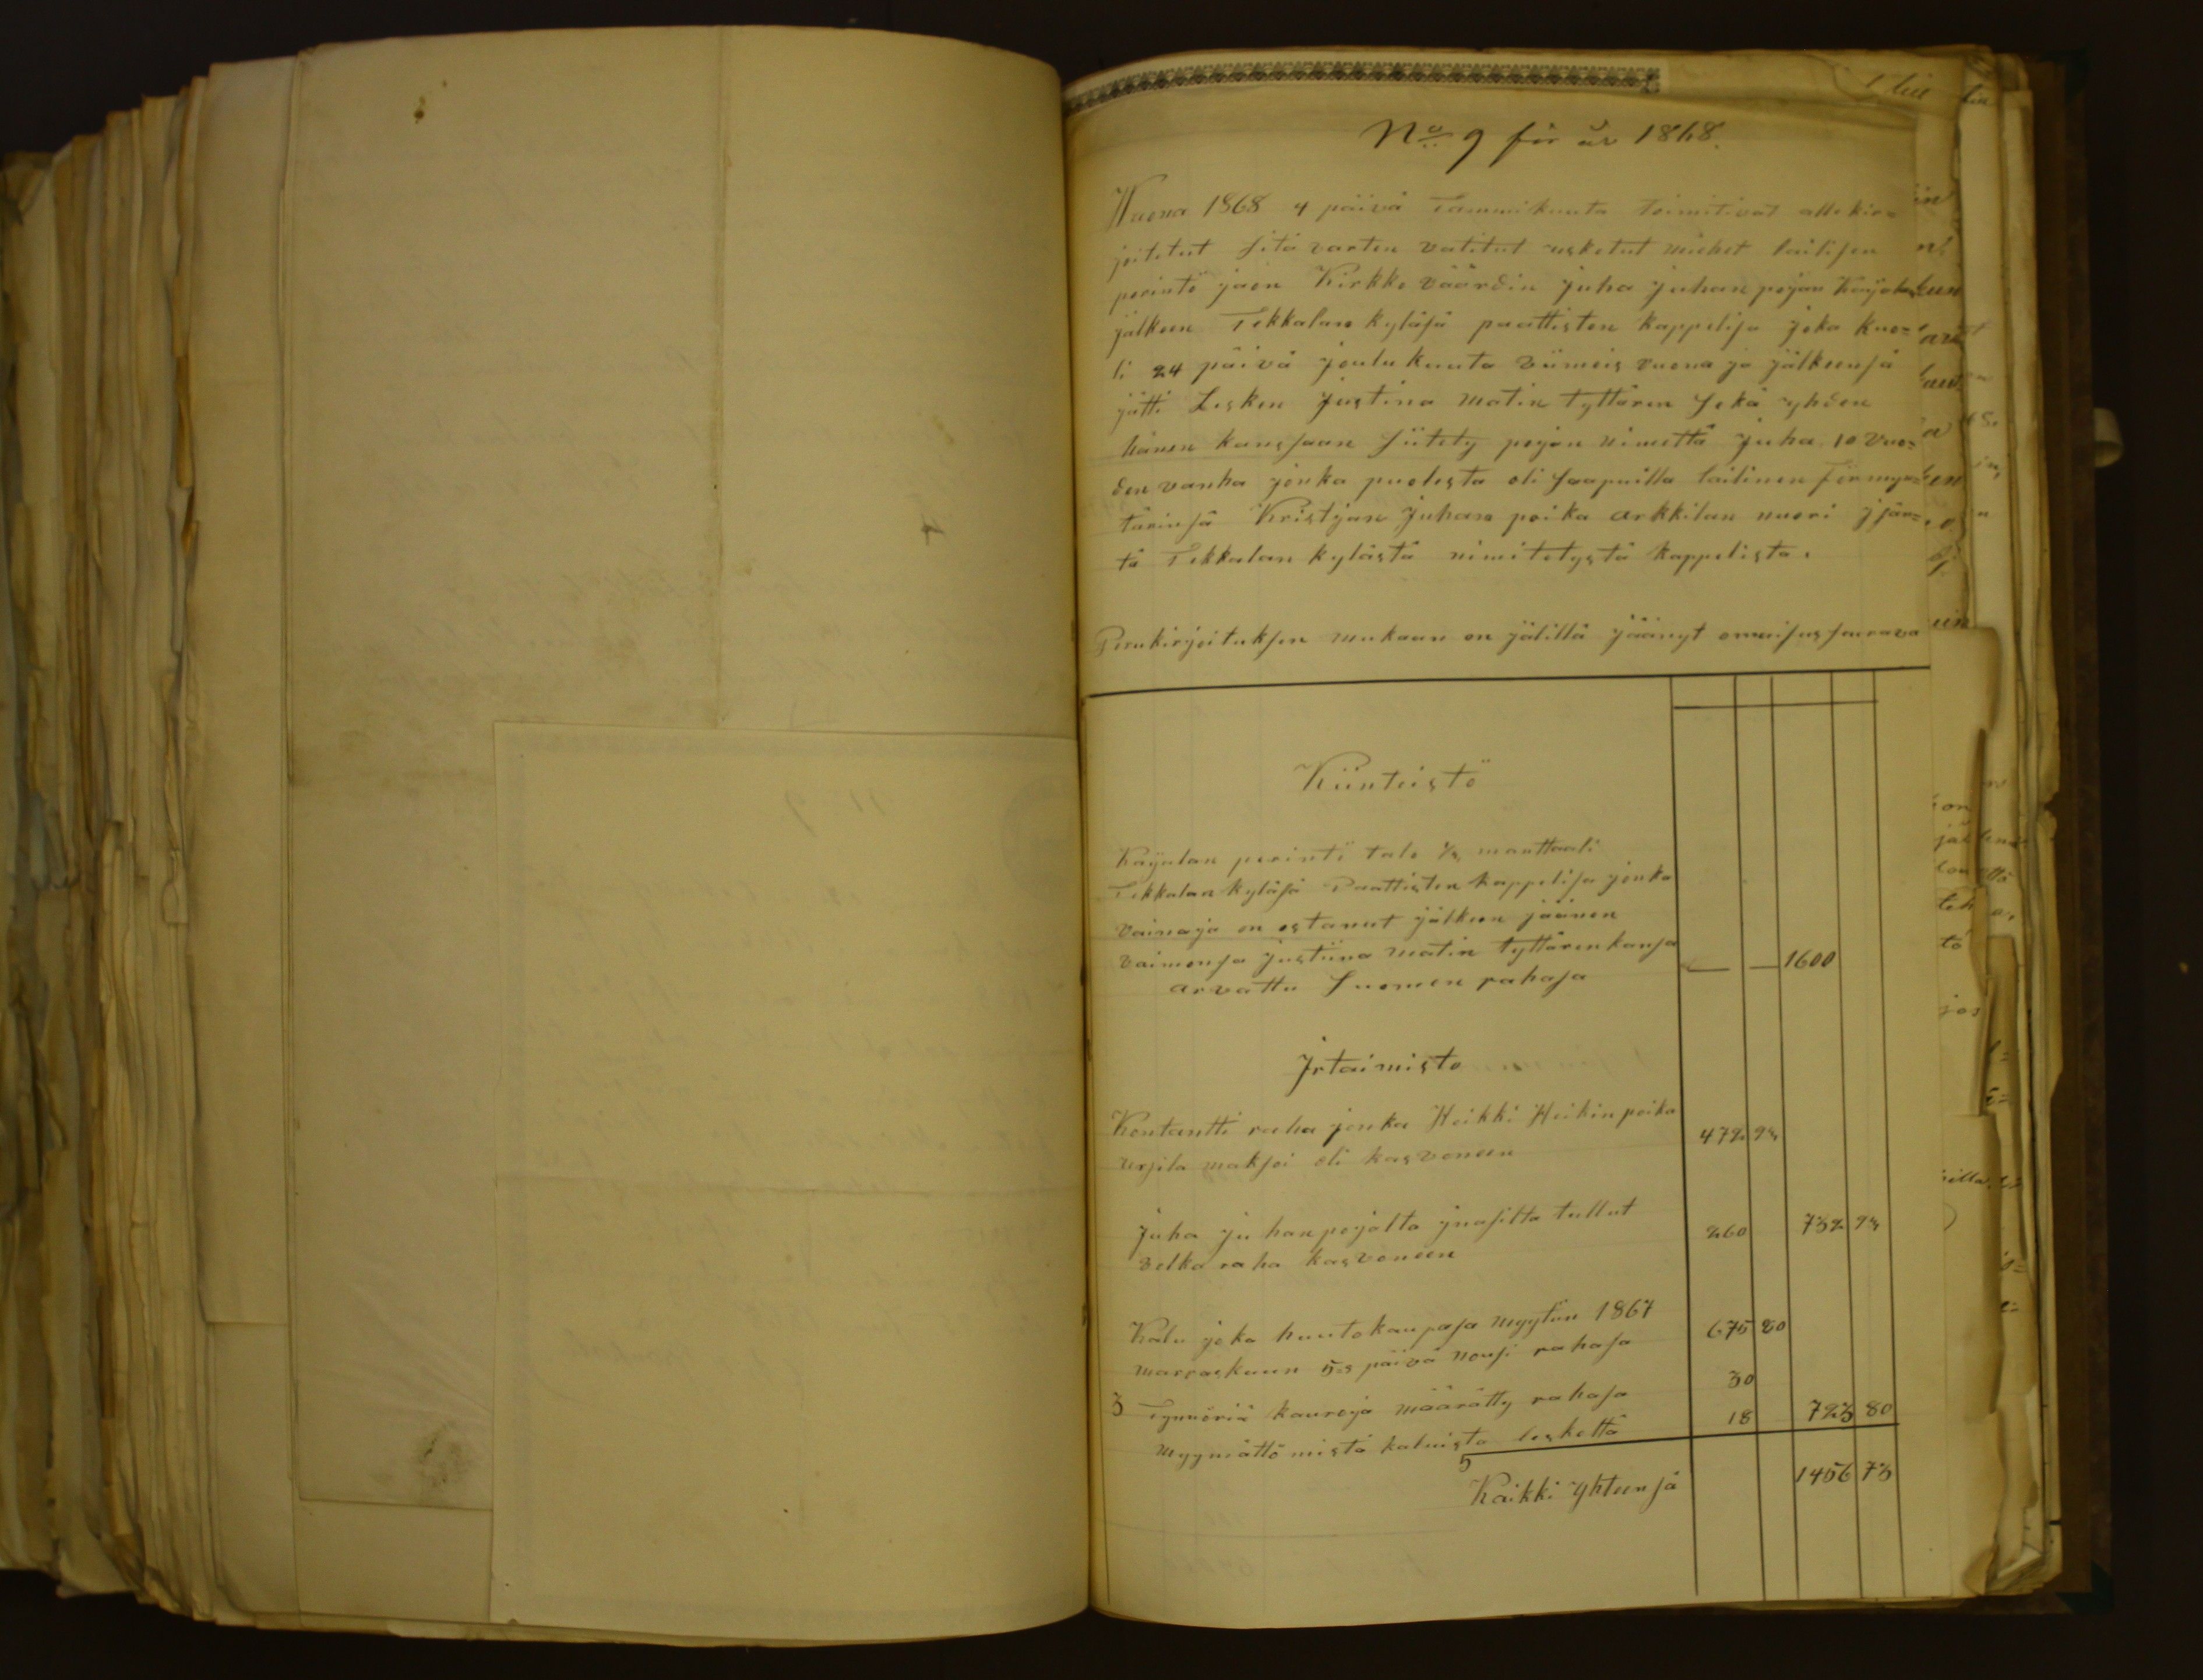 No 9 för år 1868.
Wuona 1868 4 päivä Tammikuuta toimitivat allekir=
joitetut sitä varten vatitut usketut miehet lailisen
perintö jaon Kirkko väärdin Juha Juhan pojan Käyrälän
jälkeen Tekkalan kyläsä paattisten kappelisa joka kuo=
li 24 päivä joulukuuta viimeis vuona ja jälkeensä
jätti Lesken Justina Matin tyttären sekä yhden
hänen kanssaan siitety pojan nimettä Juha 10 vuo=
den vanha jonka puolesta oli saapuilla lailinen förmyn=
tärinsä Kristjan Juhan poika arkkilan nuori jsän=
tä Tekkalan kylästä nimitetystä kappelista.
Perukirjoituksen mukaan on jälillä jäänyt omaisus seurava
Kiinteistö
perintö talo manttaali
Tekkalan kyläsä Paattisten kappelisa jonka
vainaja on ostanut jälkeen jäänen
vaimonsa justiina matin tyttären kansa
arvattu Suomen rahasa — — 1600
Jrtaimisto
Kontantti raha jonka Heikki Heikin poika
maksoi oli kasvoneen 472 93
Juha ju han pojalta sisälta tullut
velka raha kasvoneen 260 732 93
Kalu joka huutokaupasa myytiin 1867
marraskuun 5=s päivä nousi rahasa 675 80
3 Tynnöriä kauroja määrätty rahasa 30
Myymättömistä kaluista leskettä 18 723 80
5
Kaikki yhteensä 1456 73